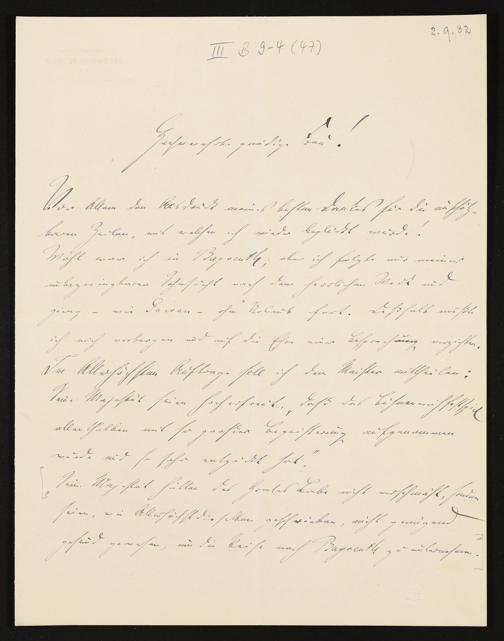 2.9.82
III B 9-4 (47)
Hochverehrte gnädige Frau!
Vor Allem den Ausdruck meines besten Dankes für die
baren Zeilen, mit welchen ich wieder beglückt wurde!
Wohl war ich in Bayreuth; aber ich folgte nur meiner
unbezwingbaren Sehnsucht nach dem herrlichen Werk und
ging – wie – ohne Urlaub fort. Deßhalb mußte
ich mich verborgen und auf die Ehre einer Besprechung verzichten.
Im Allerhöchsten Auftrage soll ich dem Meister mittheilen:
Seine Majestät seien hocherfreut, "daß das Bühnenweihfestspiel
allerhalben mit so großer Begeisterung aufgenommen
wurde und so sehr entzückt hat".
Seine Majestät hätten des Grales Labe nicht verschmäht, sondern
seien, wie Allerhöchstdieselben geschrieben, nicht genügend
gesund gewesen, um die Reise nach Bayreuth zu unternehmen.